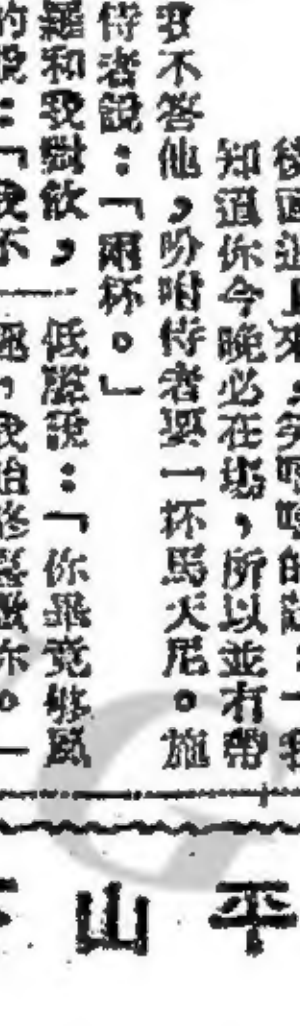 後面追上來，笑嘻嘻的說：「我
知道你今晚必在場，所以並冇帶
我不答他，吩咐侍者要一杯馬天尼。施
侍者說：「兩杯。」
羅和我對飲，低聲說：「你畢竟够風
的說：「我不
平山